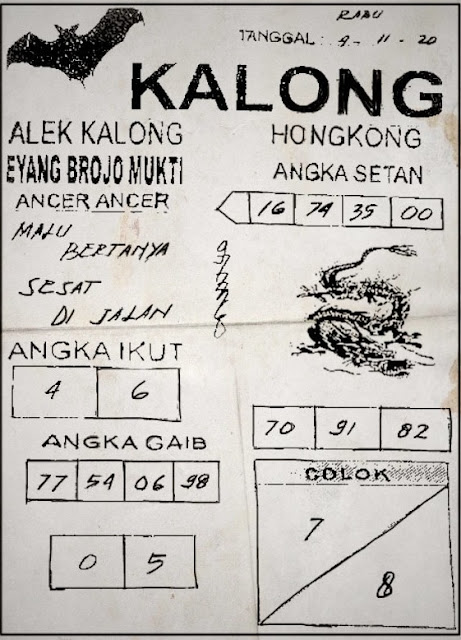 RABU
TANGGAL : 9 - 11 - 20
KALONG
ALEK KALONG
EYANG BROJO MUKTI
ANCER ANCER
MALU
BERTANYA
SESAT
DI JALAN
HONGKONG
ANGKA SETAN
16 74 35 00
ANGKA IKUT
4 6
ANGKA GAIB
77 54 06 98
0 5
70 91 82
COLOK
7
8